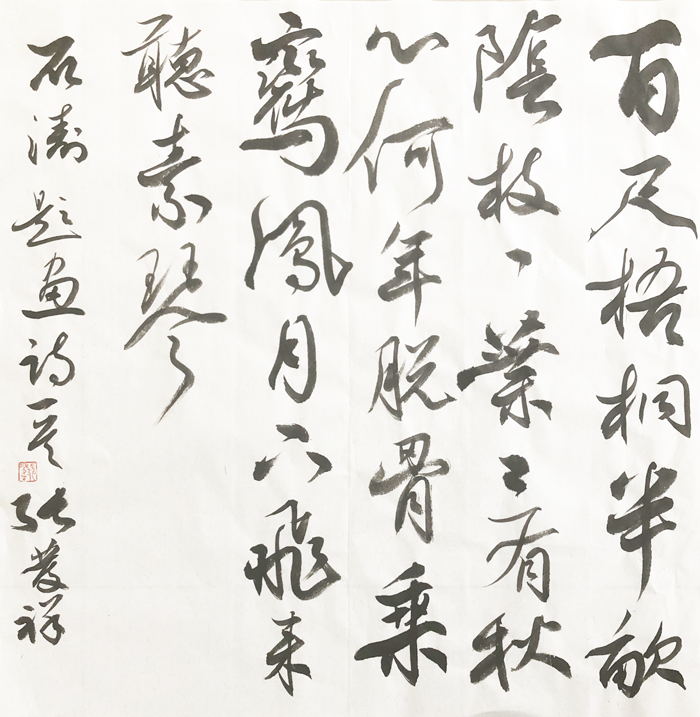 百尺梧桐半畝
陰枝〻葉〻有秋
心何年脱骨乘
鸞鳳月下飛来
聽素琴
石濤题画詩一首 張發祥